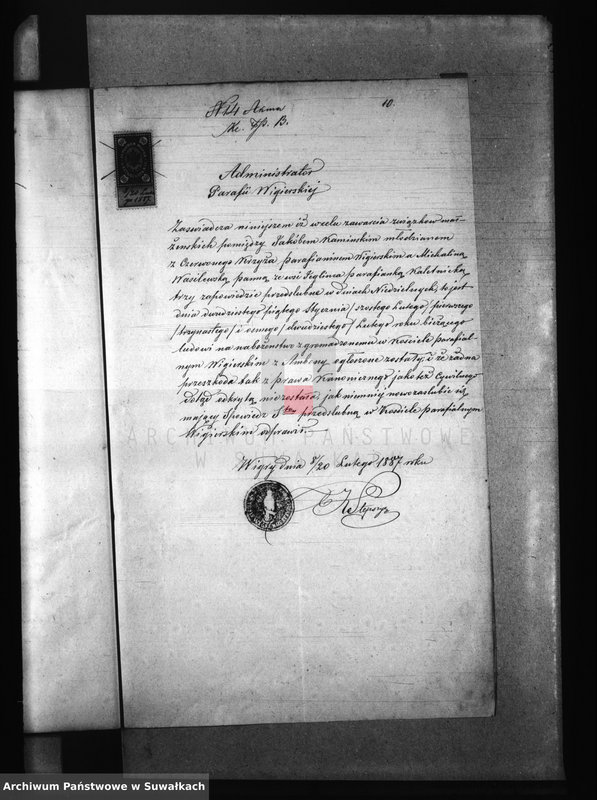 10.
No 14 Akma
Administrator
Parafii Wigierskiej
Zaświadcza niniejszem iż w celu zawarcia związków mał-
żeńskich pomiędzy Jakóbem Kamińskim młodzianem
z Czerwonego Krzyża parafianinem Wigierskim a Michaliną
Wasilewską panną ze wsi Żeglinca parafianką Kaletnicką
trzy zapowiedzie przedslubne w dniach Niedzielnych, to jest
dnia dwudziestego /piątego Stycznia/ szóstego Lutego, /pierwszego
/trzynastego/ i ósmego /dwudziestego/ Lutego roku bieżącego
ludowi na nabożeństwo zgromadzonemu w Kościele parafial-
nym Wigierskim z Ambony ogłoszone zostały, i że żadna
przeszkoda tak z prawa Kanonicznego jako też Cywilnego
dotąd odkrytą nie została, jak niemniej nowozaślubić się
mający Spowiedź Stą przedslubną w Kościele parafialnym
Wigierskim odprawił.
Wigry dnia 8/20 Lutego 1887 roku
ARCHIWUM PAŃSTWOWE
W SUWAŁKACH
Archiwum Państwowe w Suwałkach